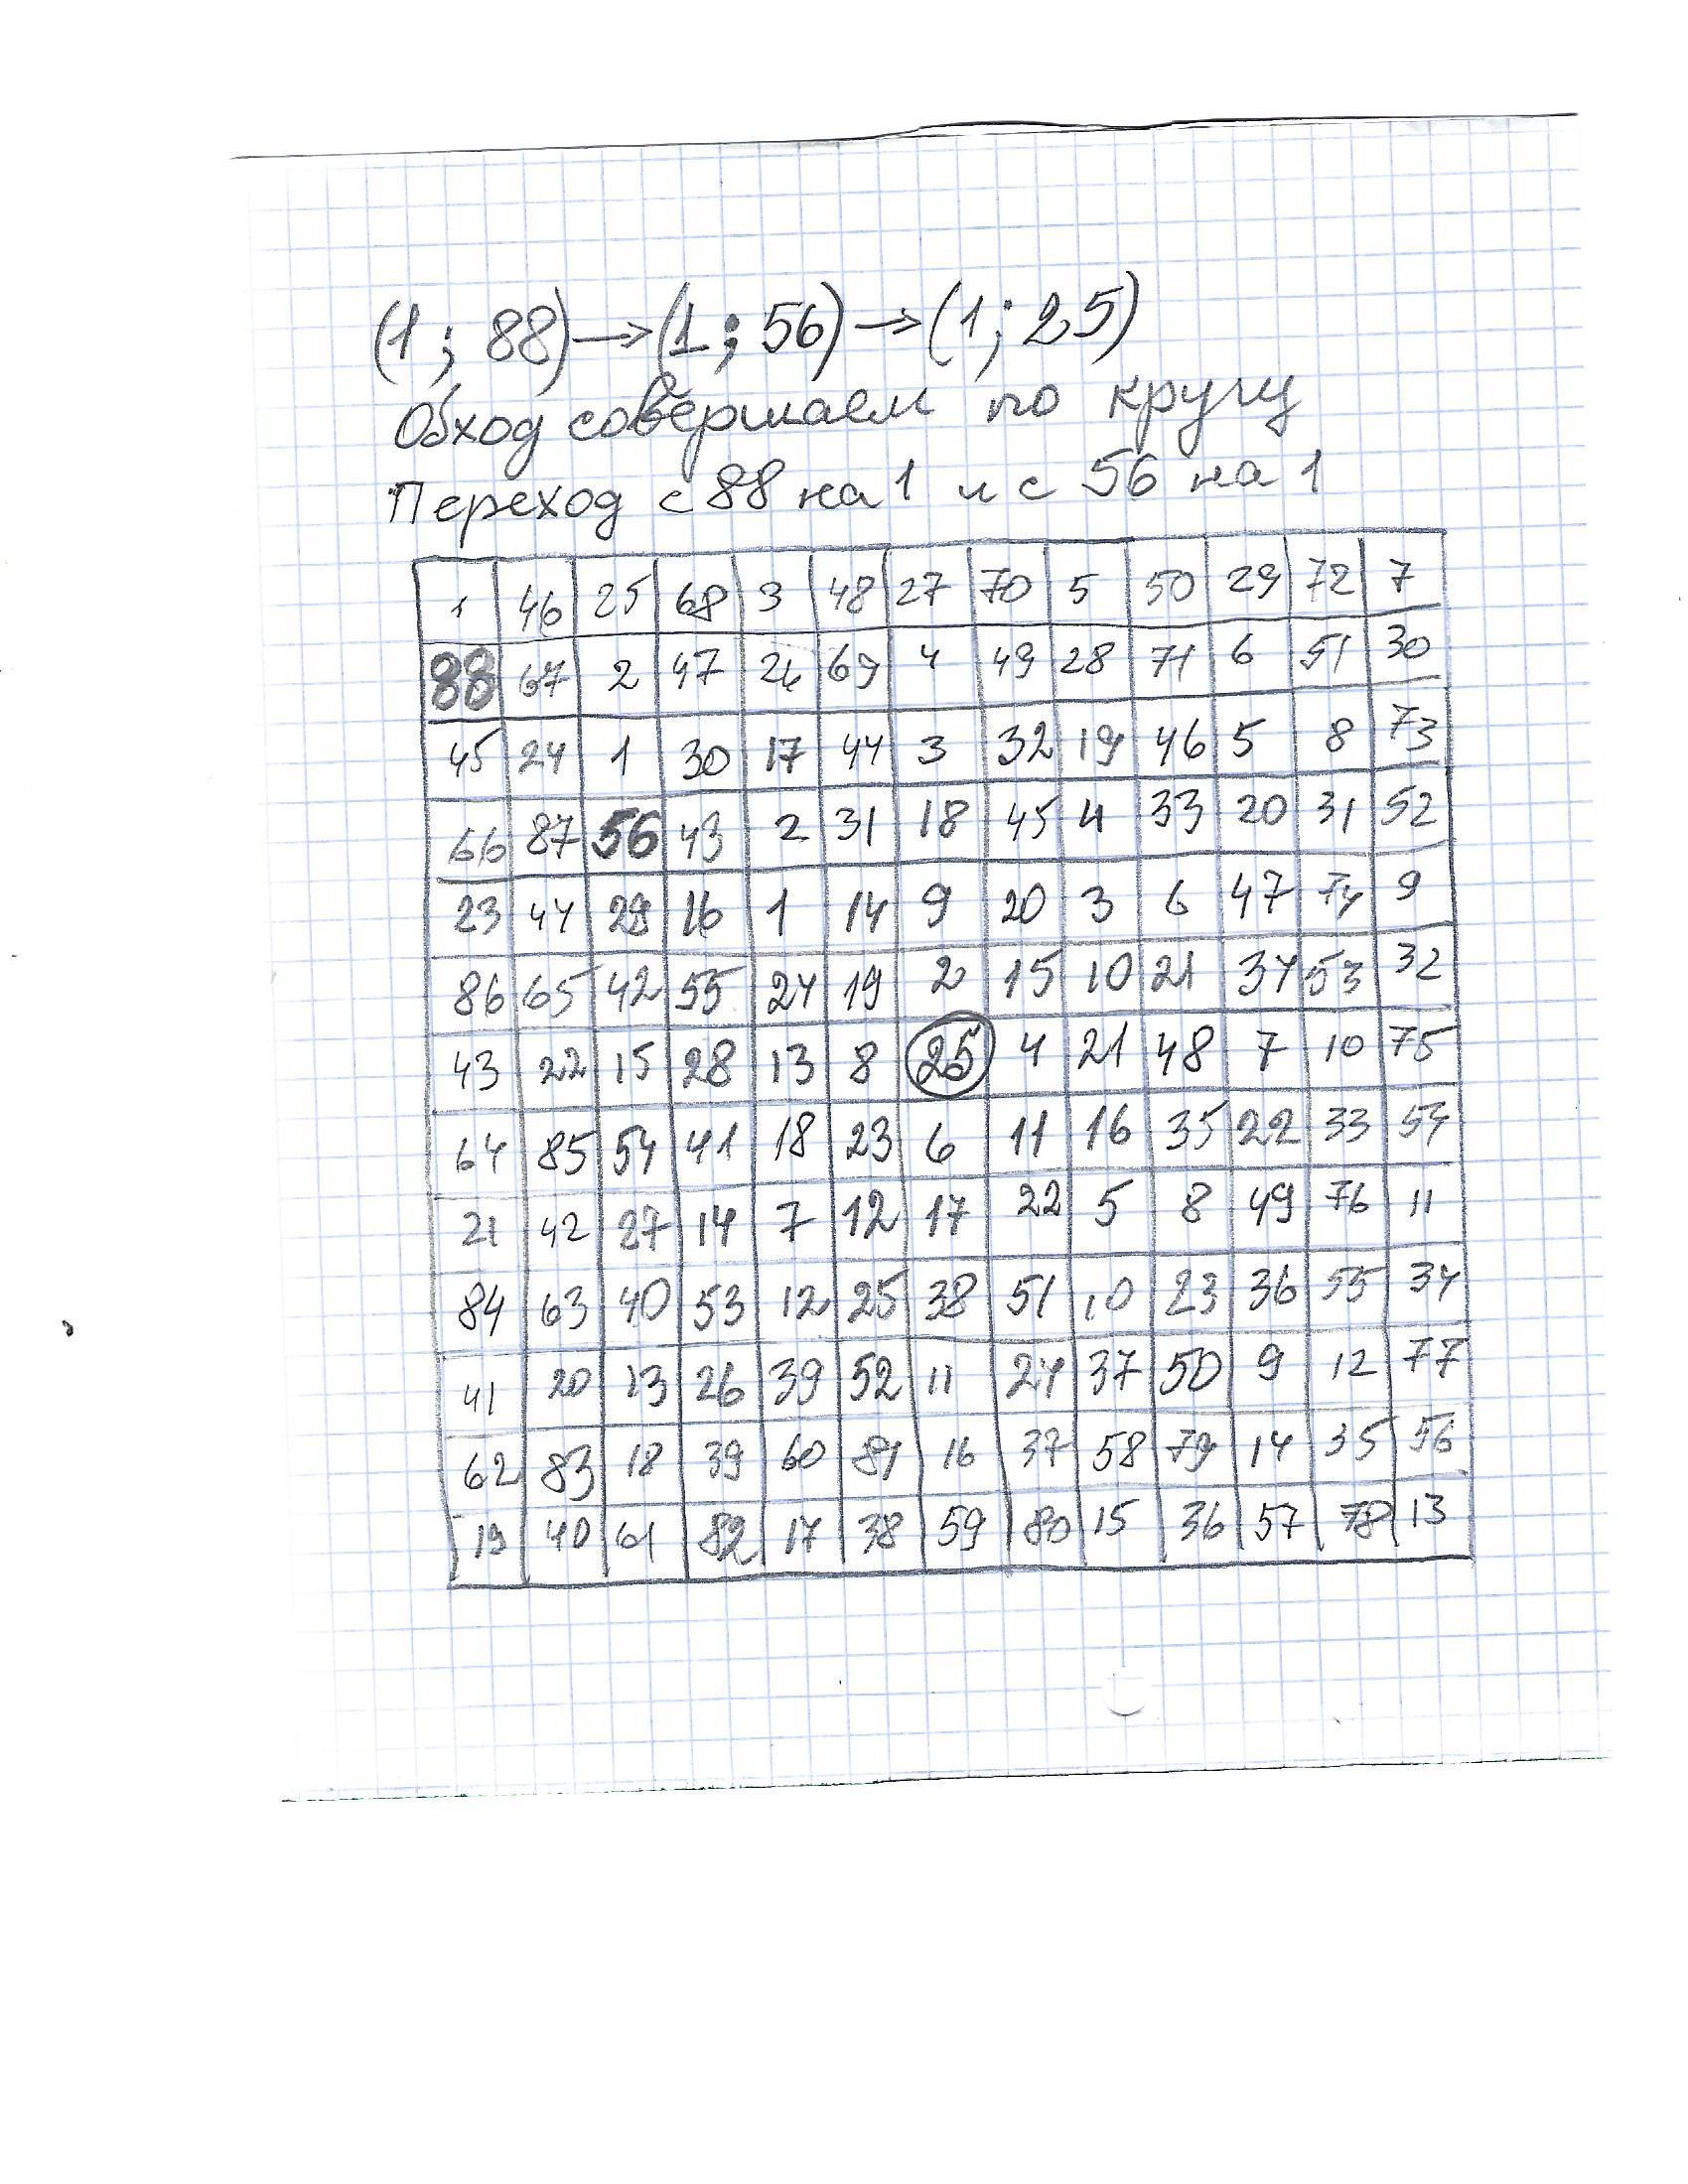 (1 ; 88) → (1 ; 56) → (1 ; 25)
Обход совершаем по кругу
Переход с 88 на 1 и с 56 на 1
1 46 25 68 3 48 27 70 5 50 29 72 7
88 67 2 47 26 69 4 49 28 71 6 51 30
45 24 1 30 17 44 3 32 19 46 5 8 73
66 87 56 43 2 31 18 45 4 33 20 31 52
23 44 29 16 1 14 9 20 3 6 47 74 9
86 65 42 55 24 19 2 15 10 21 34 53 32
43 22 15 28 13 8 25 4 21 48 7 10 75
64 85 54 41 18 23 6 11 16 35 22 33 54
21 42 27 14 7 12 17 22 5 8 49 76 11
84 63 40 53 12 25 38 51 10 23 36 55 34
41 20 13 26 39 52 11 24 37 50 9 12 77
62 83 18 39 60 81 16 37 58 79 14 35 56
19 40 61 82 17 38 59 80 15 36 57 78 13